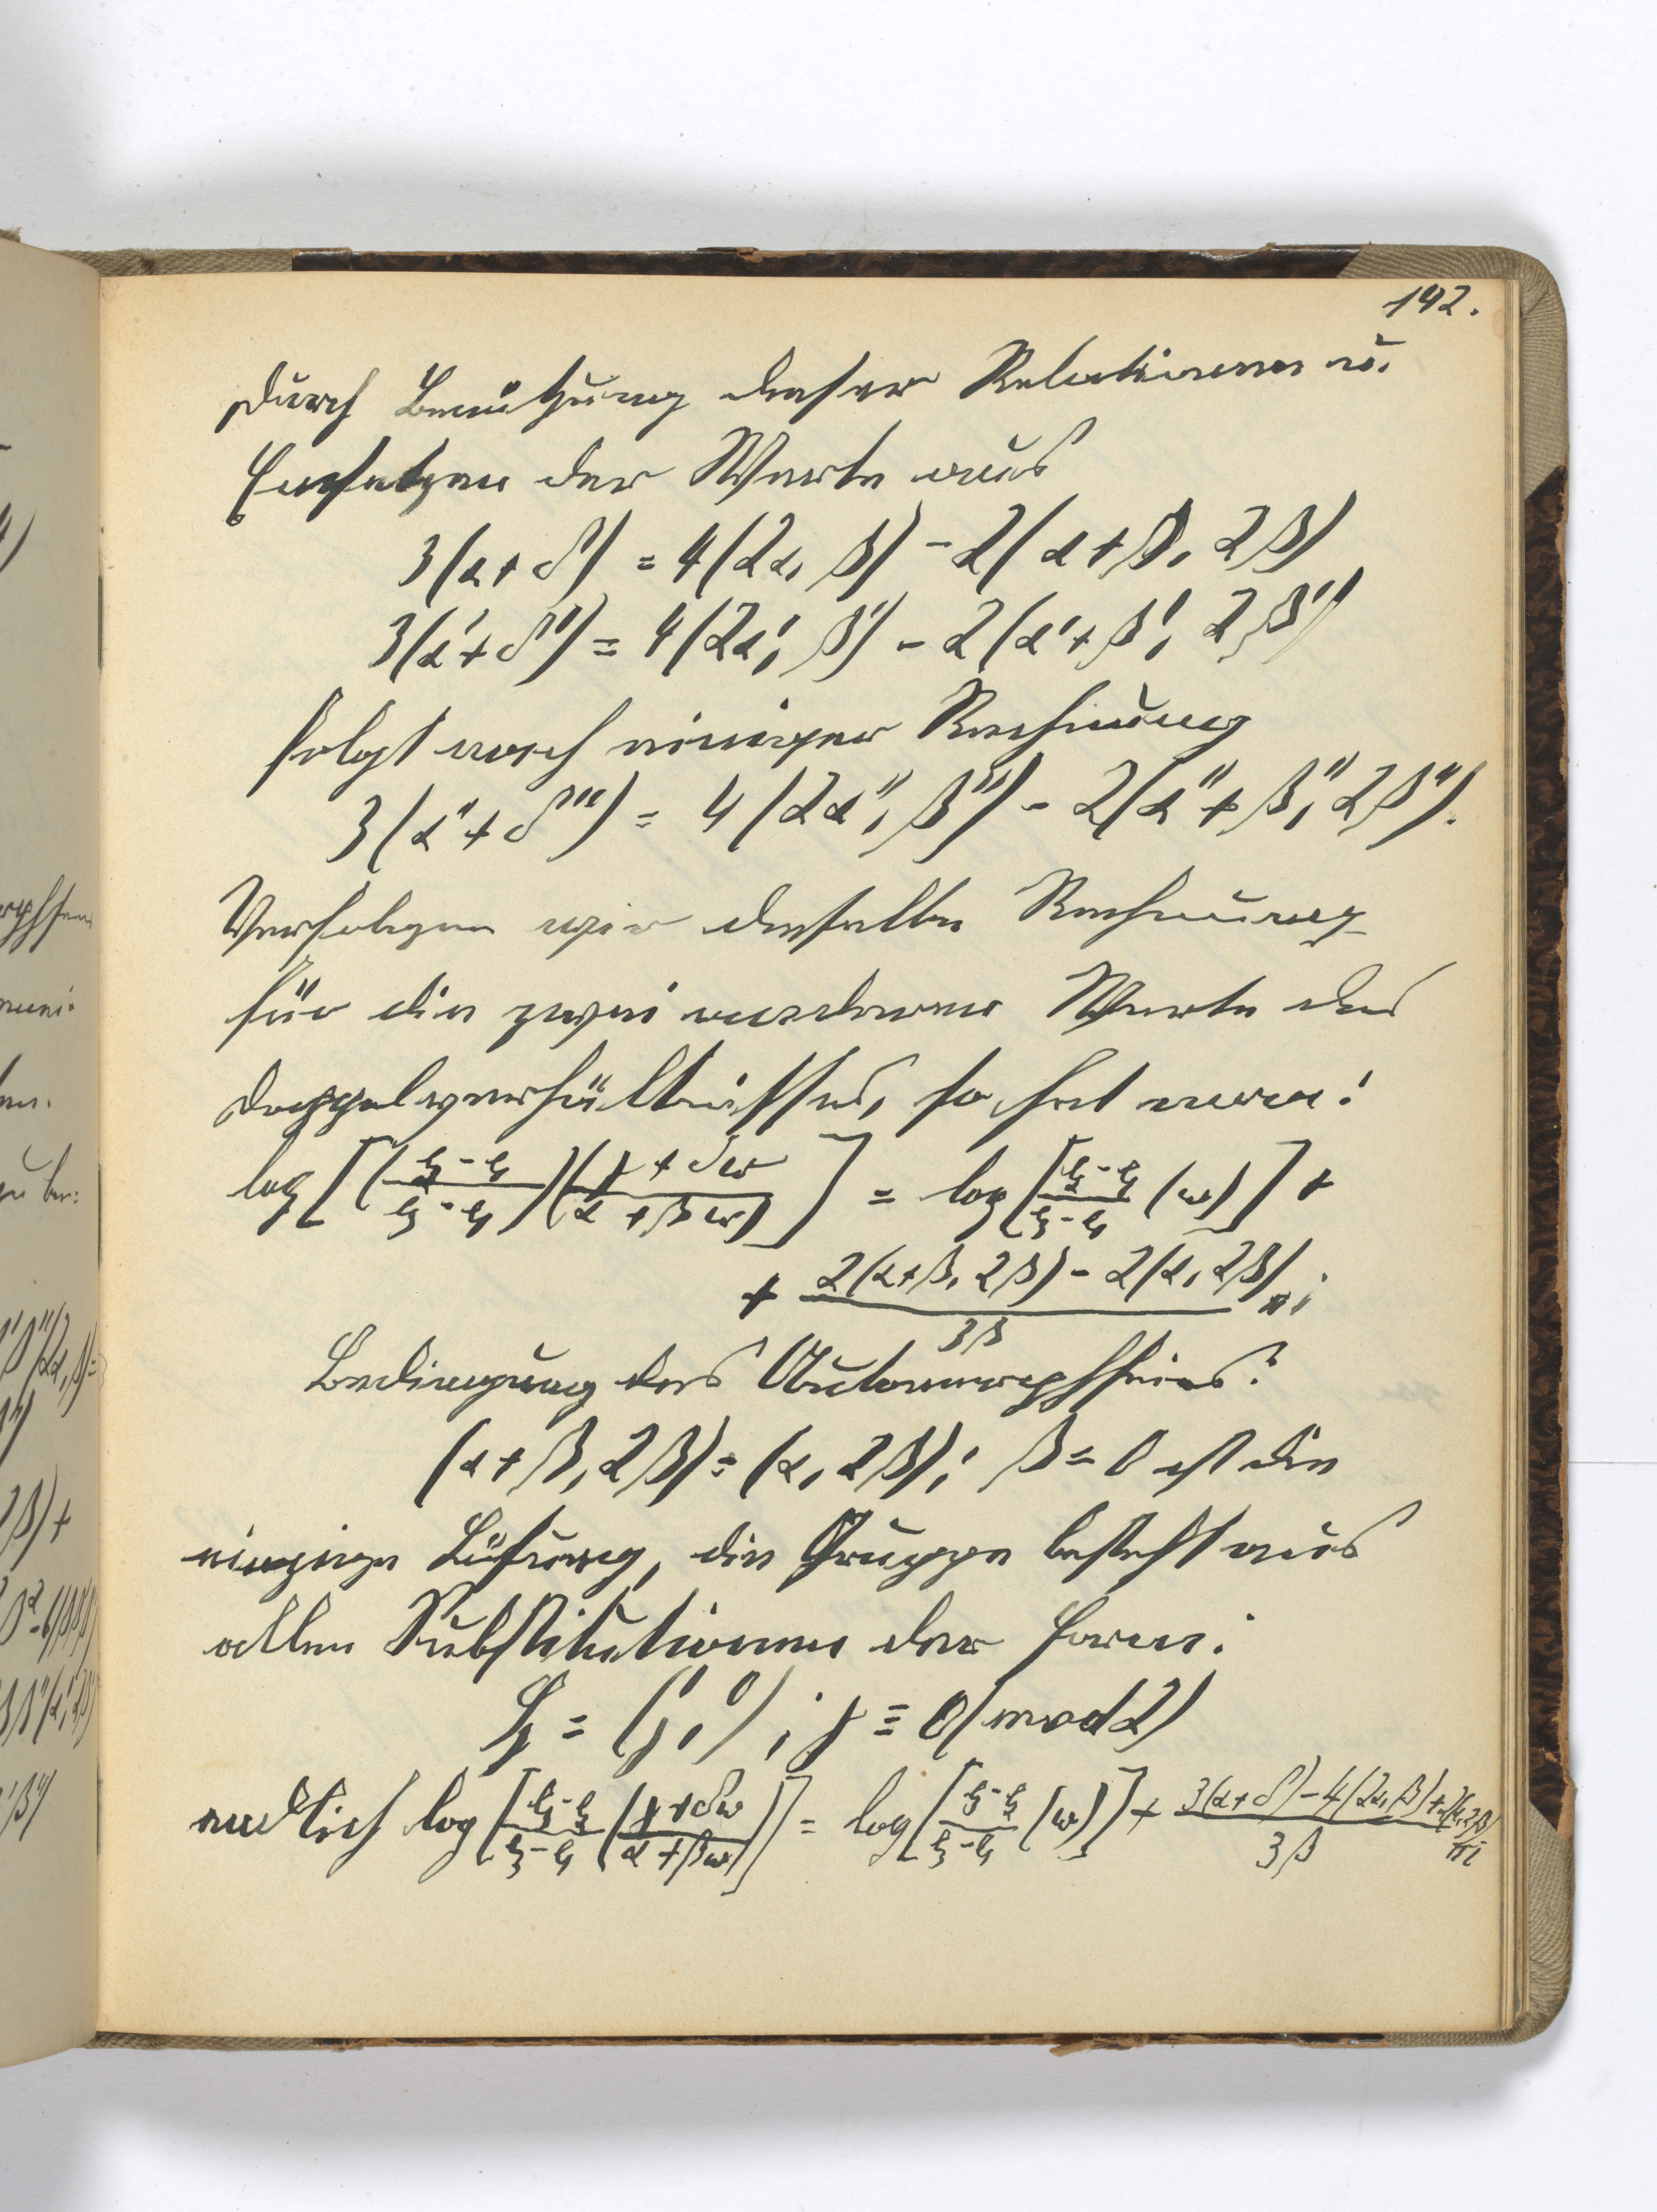 142.
Durch Benützung dieser Relationen u.
Einsetzen der Werte aus
3(α+δ) = 4(2α, β) - 2(α+β, 2β)
3(α'+δ') = 4(2α', β') - 2(α'+β', 2β')
folgt nach einiger Rechnung
3(α''+δ'') = 4(2α'', β'') - 2(α''+β'', 2β'').
Verfolgen wir dieselbe Rechnung
für die zwei anderen Werte des
Doppelverhältnisses, so hat man:
log[(e₂-e₁/e₃-e₁)(γ+δω/α+βω)] = log[e₂-e₃/e₃-e₁(ω)] +
+ 2(α+β, 2β) - 2(α, 2β)/3β πi
Bedingung des Automorphseins:
(α+β, 2β) = (α, 2β); β = 0 ist die
einzige Lösung, die Gruppe besteht aus
allen Substitutionen der Form:
S = (1, 0 / γ, 1); γ ≡ 0 (mod 2)
endlich log[e₁-e₂/e₃-e₁(γ+δω/α+βω)] = log[e₁-e₂/e₃-e₁(ω)] + 3(α+δ) - 4(2α, β) + 2(α, 2β)/3β πi